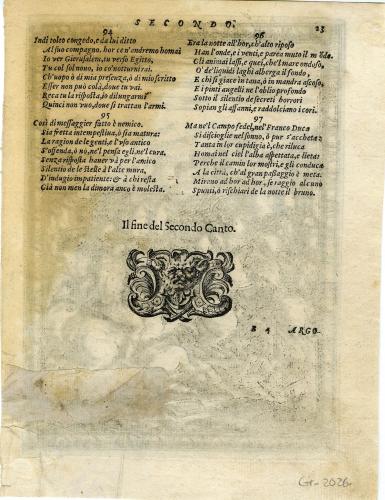 SECONDO. 23
94
Indi tolto congedo, e da lui ditto
Al suo compagno, hor ce n'andremo homai
Io ver Gierusalem, tu verso Egitto,
Tu co'l sol nuovo, io co'notturni rai,
Ch'uopo ò di mia presenza, ò di mio scritto
Esser non può colà, dove tu vai.
Reca tu la risposta, io dilungarmi
Quinci non vuò, dove si trattan l'armi.
95
Così di messaggier fatto è nemico.
Sia fretta intempestiva, ò sia matura:
La ragion de le genti, e l'uso antico
S'offenda, ò nò, nè'l pensa egli, nè'l cura.
Senza risposta haver và per l'amico
Silentio de le stelle à l'alte mura,
D'indugio impatiente: & à chi resta
Già non men la dimora anco è molesta.
96
Era la notte all'hor, ch'alto riposo
Han l'onde, e i venti, e parea muto il mondo
Gli animai lassi, e quei, che'l mare ondoso,
O' de'liquidi laghi alberga il fondo,
E chi si giace in tana, ò in mandra ascoso,
E i pinti augelli ne l'oblio profondo
Sotto il silentio de'secreti horrori
Sopian gli affanni, e raddolciano i cori.
97
Ma nè'l Campo fedel, nè'l Franco Duca
Si discioglie nel sonno, ò pur s'accheta:
Tanta in lor cupidigia è, che riluca
Homai nel ciel l'alba aspettata, e lieta:
Perche il camin lor mostri, e gli conduca
A la città, ch'al gran passaggio è meta.
Mirano ad hor ad hor, se raggio alcuno
Spunti, ò rischiari de la notte il bruno.
Il fine del Secondo Canto.
B 4 ARGO-
Gr-2026